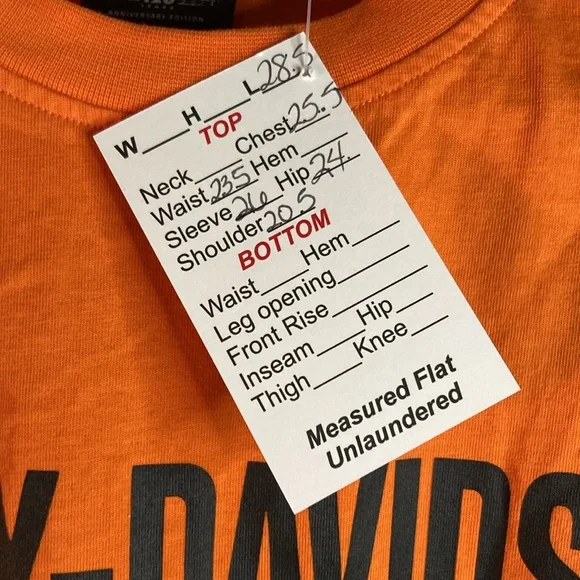 ANNIVERSARY EDITION
W ___ H ___ L 28.5
TOP
Neck ___ Chest 25.5
Waist 23.5 Hem ___
Sleeve 26 Hip 24
Shoulder 20.5
BOTTOM
Waist ___ Hem ___
Leg opening ___
Front Rise ___
Inseam ___ Hip ___
Thigh ___ Knee ___
Measured Flat
Unlaundered
Y-DAVIDS